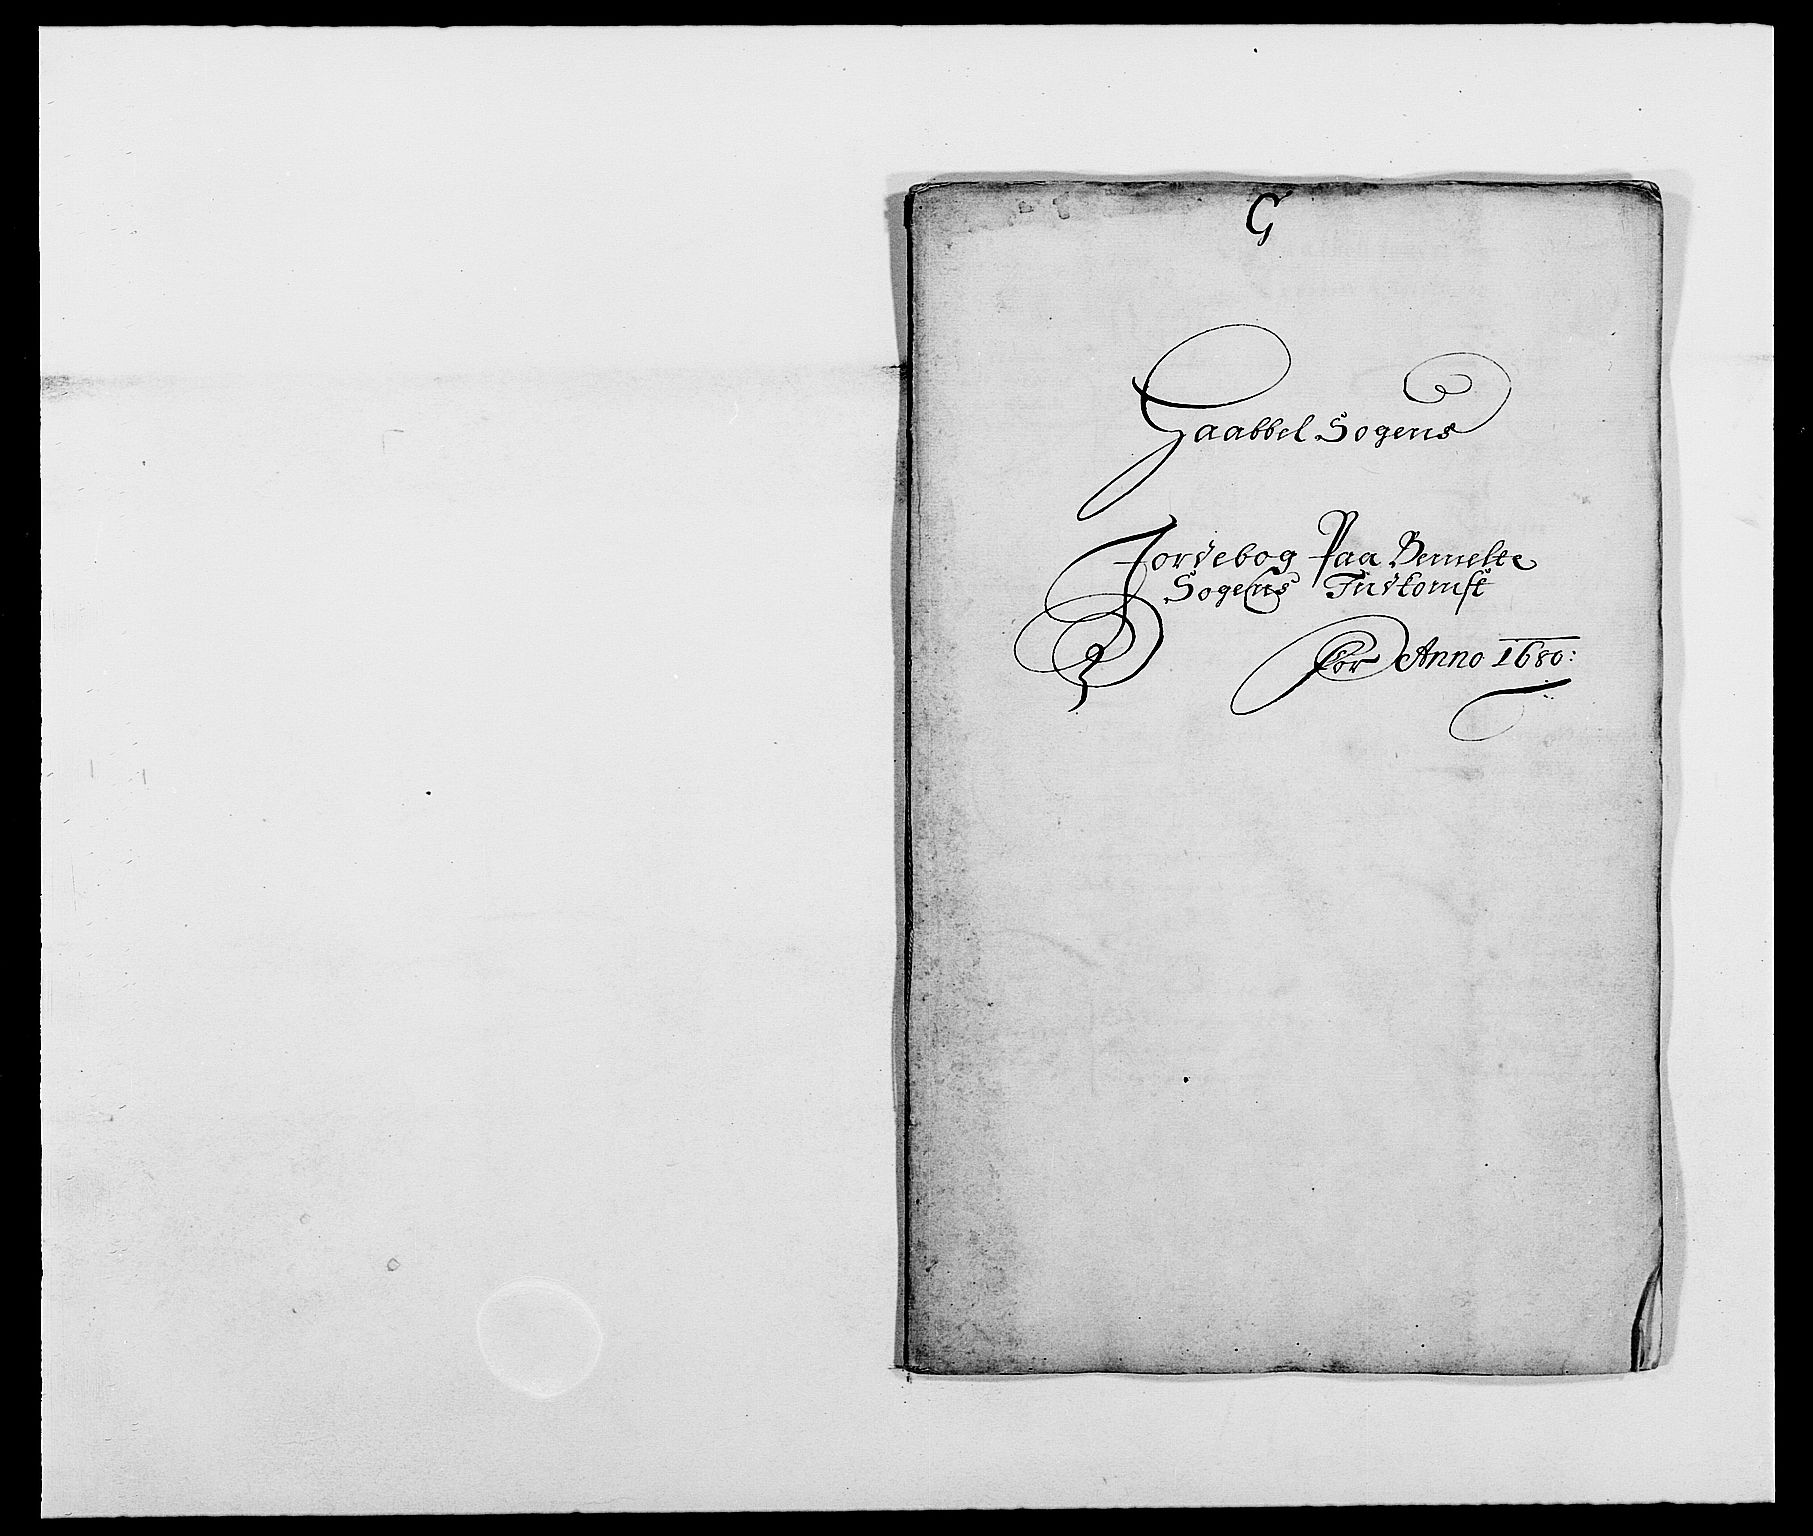 G
Gaabbel Sogens
Jordebog Paa Bemelte
Sogens Indkomst
for Anno 1680: